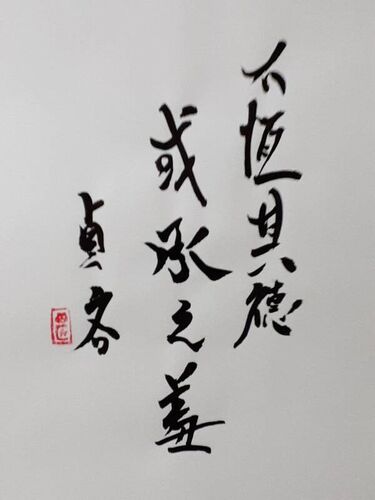 不恒其德
或承之羞
貞吝